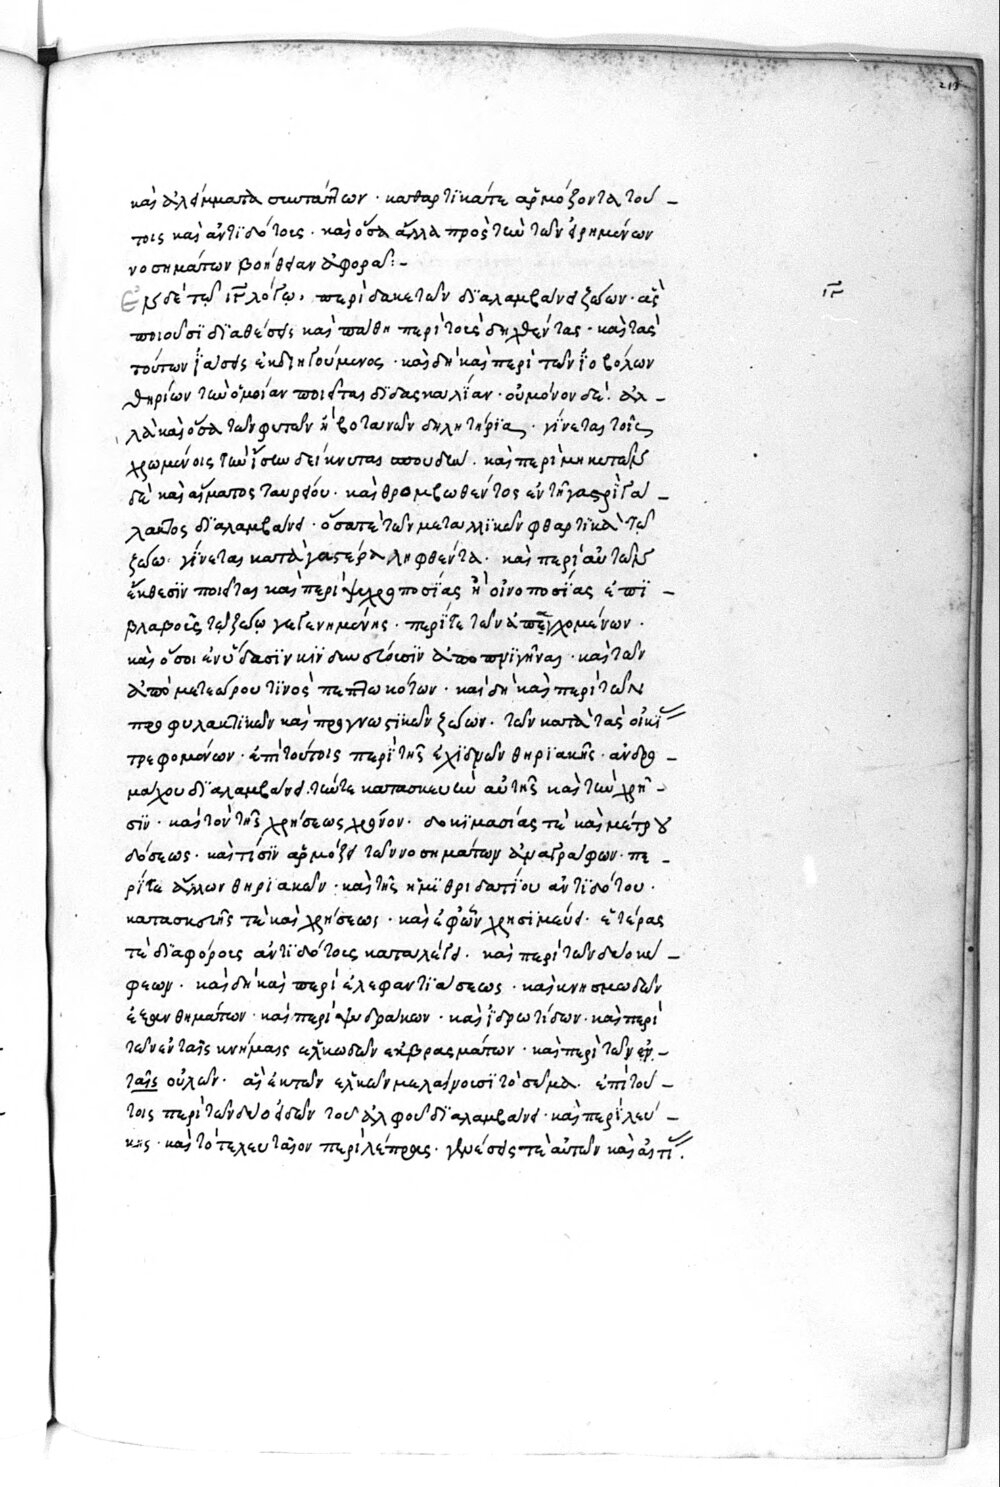 213
καὶ ἀλείμματα συντάττων · καθαρτικά τε ἁρμόζοντα τού-
τοις καὶ ἀντιδότους · καὶ ὅσα ἄλλα πρὸς τὴν τῶν εἰρημένων
νοσημάτων βοήθειαν ἀφορᾶ :-
Ἐν δὲ τῷ ιγ λόγῳ, περὶ δακετῶν διαλαμβάνει ζώων · ἃς
ιγ
ποιοῦσι διαθέσεις καὶ πάθη περὶ τοὺς δηχθέντας · καὶ τὰς
τούτων ἰάσεις ἐκδιηγούμενος · καὶ δὴ καὶ περὶ τῶν ἰοβόλων
θηρίων τὴν ὁμοίαν ποιεῖται διδασκαλίαν · οὐ μόνον δέ · ἀλ-
λὰ καὶ ὅσα τῶν φυτῶν ἢ βοτανῶν δηλητήρια · γίνεται τοῖς
χρωμένοις τὴν ἴσην δείκνυται σπουδήν · καὶ περὶ μηκύτων
δὲ καὶ αἵματος ταυρείου · καὶ θρομβωθέντος ἐν τῇ γαστρὶ γά-
λακτος διαλαμβάνει · ὅσα τε τῶν μεταλλικῶν φθαρτικὰ τῷ
ζώω · γίνεται κατὰ γαστέρα ληφθέντα · καὶ περὶ αὐτῶν
ἔκθεσιν ποιεῖται καὶ περὶ ψυχροποσίας ἢ οἰνοποσίας ἐπι-
βλαβοῦς τῷ ζώῳ γεγενημένης · περί τε τῶν ἀπαγχομένων ·
καὶ ὅσοι ἐν ὕδασιν κινδυνεύουσιν ἀποπνιγῆναι · καὶ τῶν
ἀπὸ μετεώρου τινὸς πεπτωκότων · καὶ δὴ καὶ περὶ τῶν
προφυλακτικῶν καὶ προγνωστικῶν ζώων · τῶν κατὰ τὰς οἰκί
τρεφομένων · ἐπὶ τούτοις περὶ τῆς ἐχιδνῶν θηριακῆς · ἀνδρο-
μάχου διαλαμβάνει · τήν τε κατασκευὴν αὐτῆς καὶ τὴν χρῆ-
σιν · καὶ τὸν τῆς χρήσεως χρόνον · δοκιμασίας τὲ καὶ μέτρου
δόσεως · καὶ τίσιν ἁρμόζει τῶν νοσημάτων ἀναγράφων · πε-
ρί τε ἄλλων θηριακῶν · καὶ τῆς ἡ μιθριδατίου ἀντιδότου ·
κατασκευῆς τὲ καὶ χρήσεως · καὶ ἐφ' ὧν χρησιμεύει · ἑτέρας
τὲ διαφόρους ἀντιδότους καταλέγει · καὶ περὶ τῶν δύο κύ-
φεων · καὶ δὴ καὶ περὶ ἐλεφαντιάσεως · καὶ κνησμωδῶν
ἐξανθημάτων · καὶ περὶ ψυδράκων · καὶ ἱδρωτίδων · καὶ περὶ
τῶν ἐν ταῖς κνήμαις ἑλκωδῶν ἐκβρασμάτων · καὶ περὶ τῶν ἐν-
ταῖς οὐλῶν · αἳ ἐκ τῶν ἑλκῶν μελαίνουσι τὸ σῶμα · ἐπὶ τού-
τοις περὶ τῶν δύο εἰδῶν τοῦ ἀλφοῦ διαλαμβάνει · καὶ περὶ λεύ-
κης · καὶ τὸ τελευταῖον περὶ λέπρας · γενέσεις τὲ αὐτῶν καὶ αἰτί .